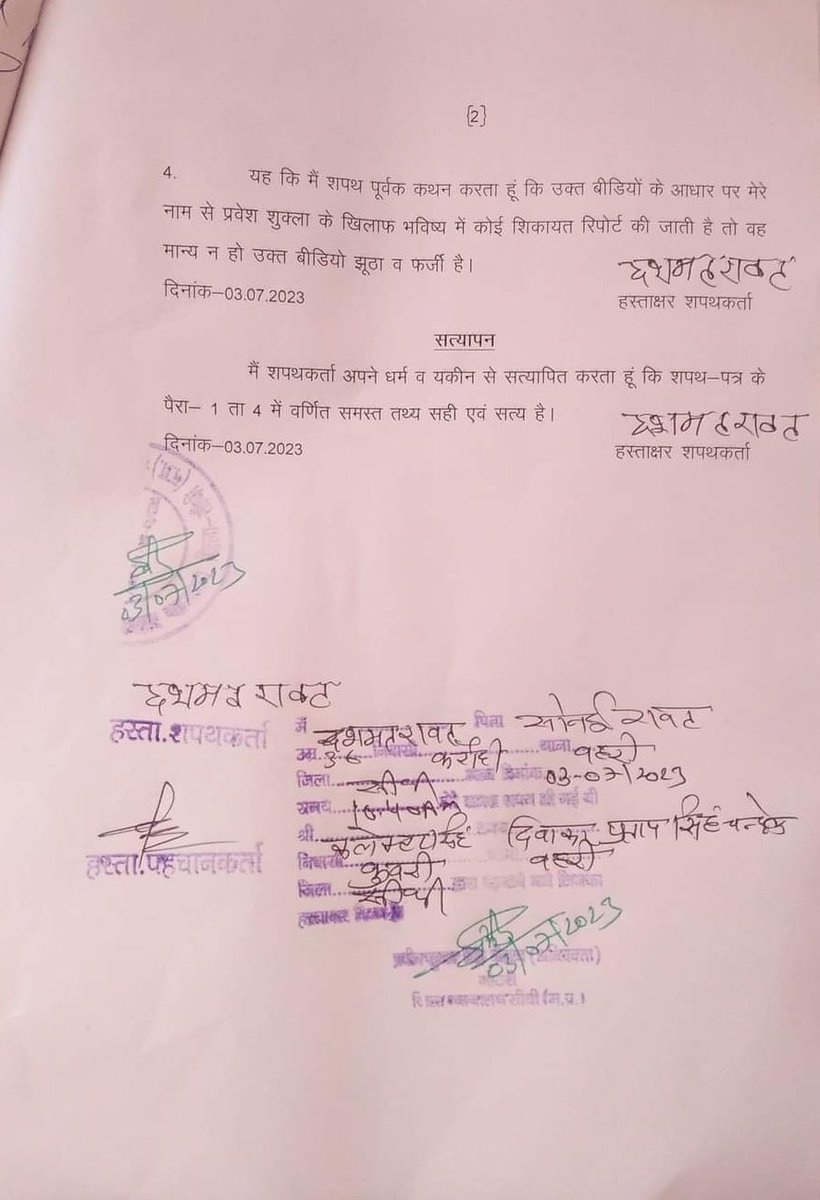 {2}
4. यह कि मैं शपथ पूर्वक कथन करता हूं कि उक्त बीडियों के आधार पर मेरे
नाम से प्रवेश शुक्ला के खिलाफ भविष्य में कोई शिकायत रिपोर्ट की जाती है तो वह
मान्य न हो उक्त बीडियो झूठा व फर्जी है।
दशमत रावत
दिनांक–03.07.2023
हस्ताक्षर शपथकर्ता
सत्यापन
मैं शपथकर्ता अपने धर्म व यकीन से सत्यापित करता हूं कि शपथ–पत्र के
पैरा– 1 ता 4 में वर्णित समस्त तथ्य सही एवं सत्य है।
दशमत रावत
दिनांक–03.07.2023
हस्ताक्षर शपथकर्ता
03/07/2023
दशमत रावत
हस्ता.शपथकर्ता
मैं दशमत रावत पिता रावत
उम्र निवासी करौंदी थाना बहरी
जिला सीधी दिनांक 03-07/2023
समय
श्री दिवाकर प्रताप सिंह
हस्ता.पहचानकर्ता
निवासी कुबरी बहरी
जिला सीधी
03/07/2023
सीधी (म.प्र.)